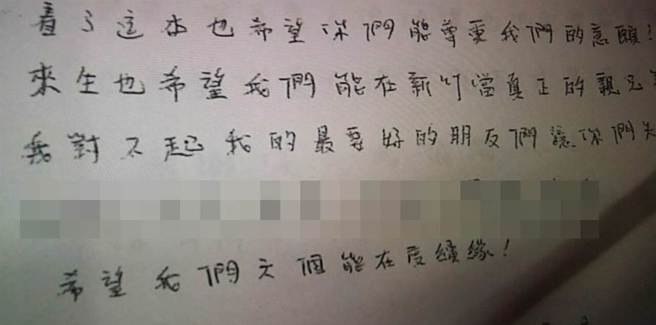 看了這本也希望你們能尊重我們的意願!
來生也希望我們能在新竹當真正的親兄
我對不起我的最要好的朋友們讓你們失
希望我們六個能在度續緣!